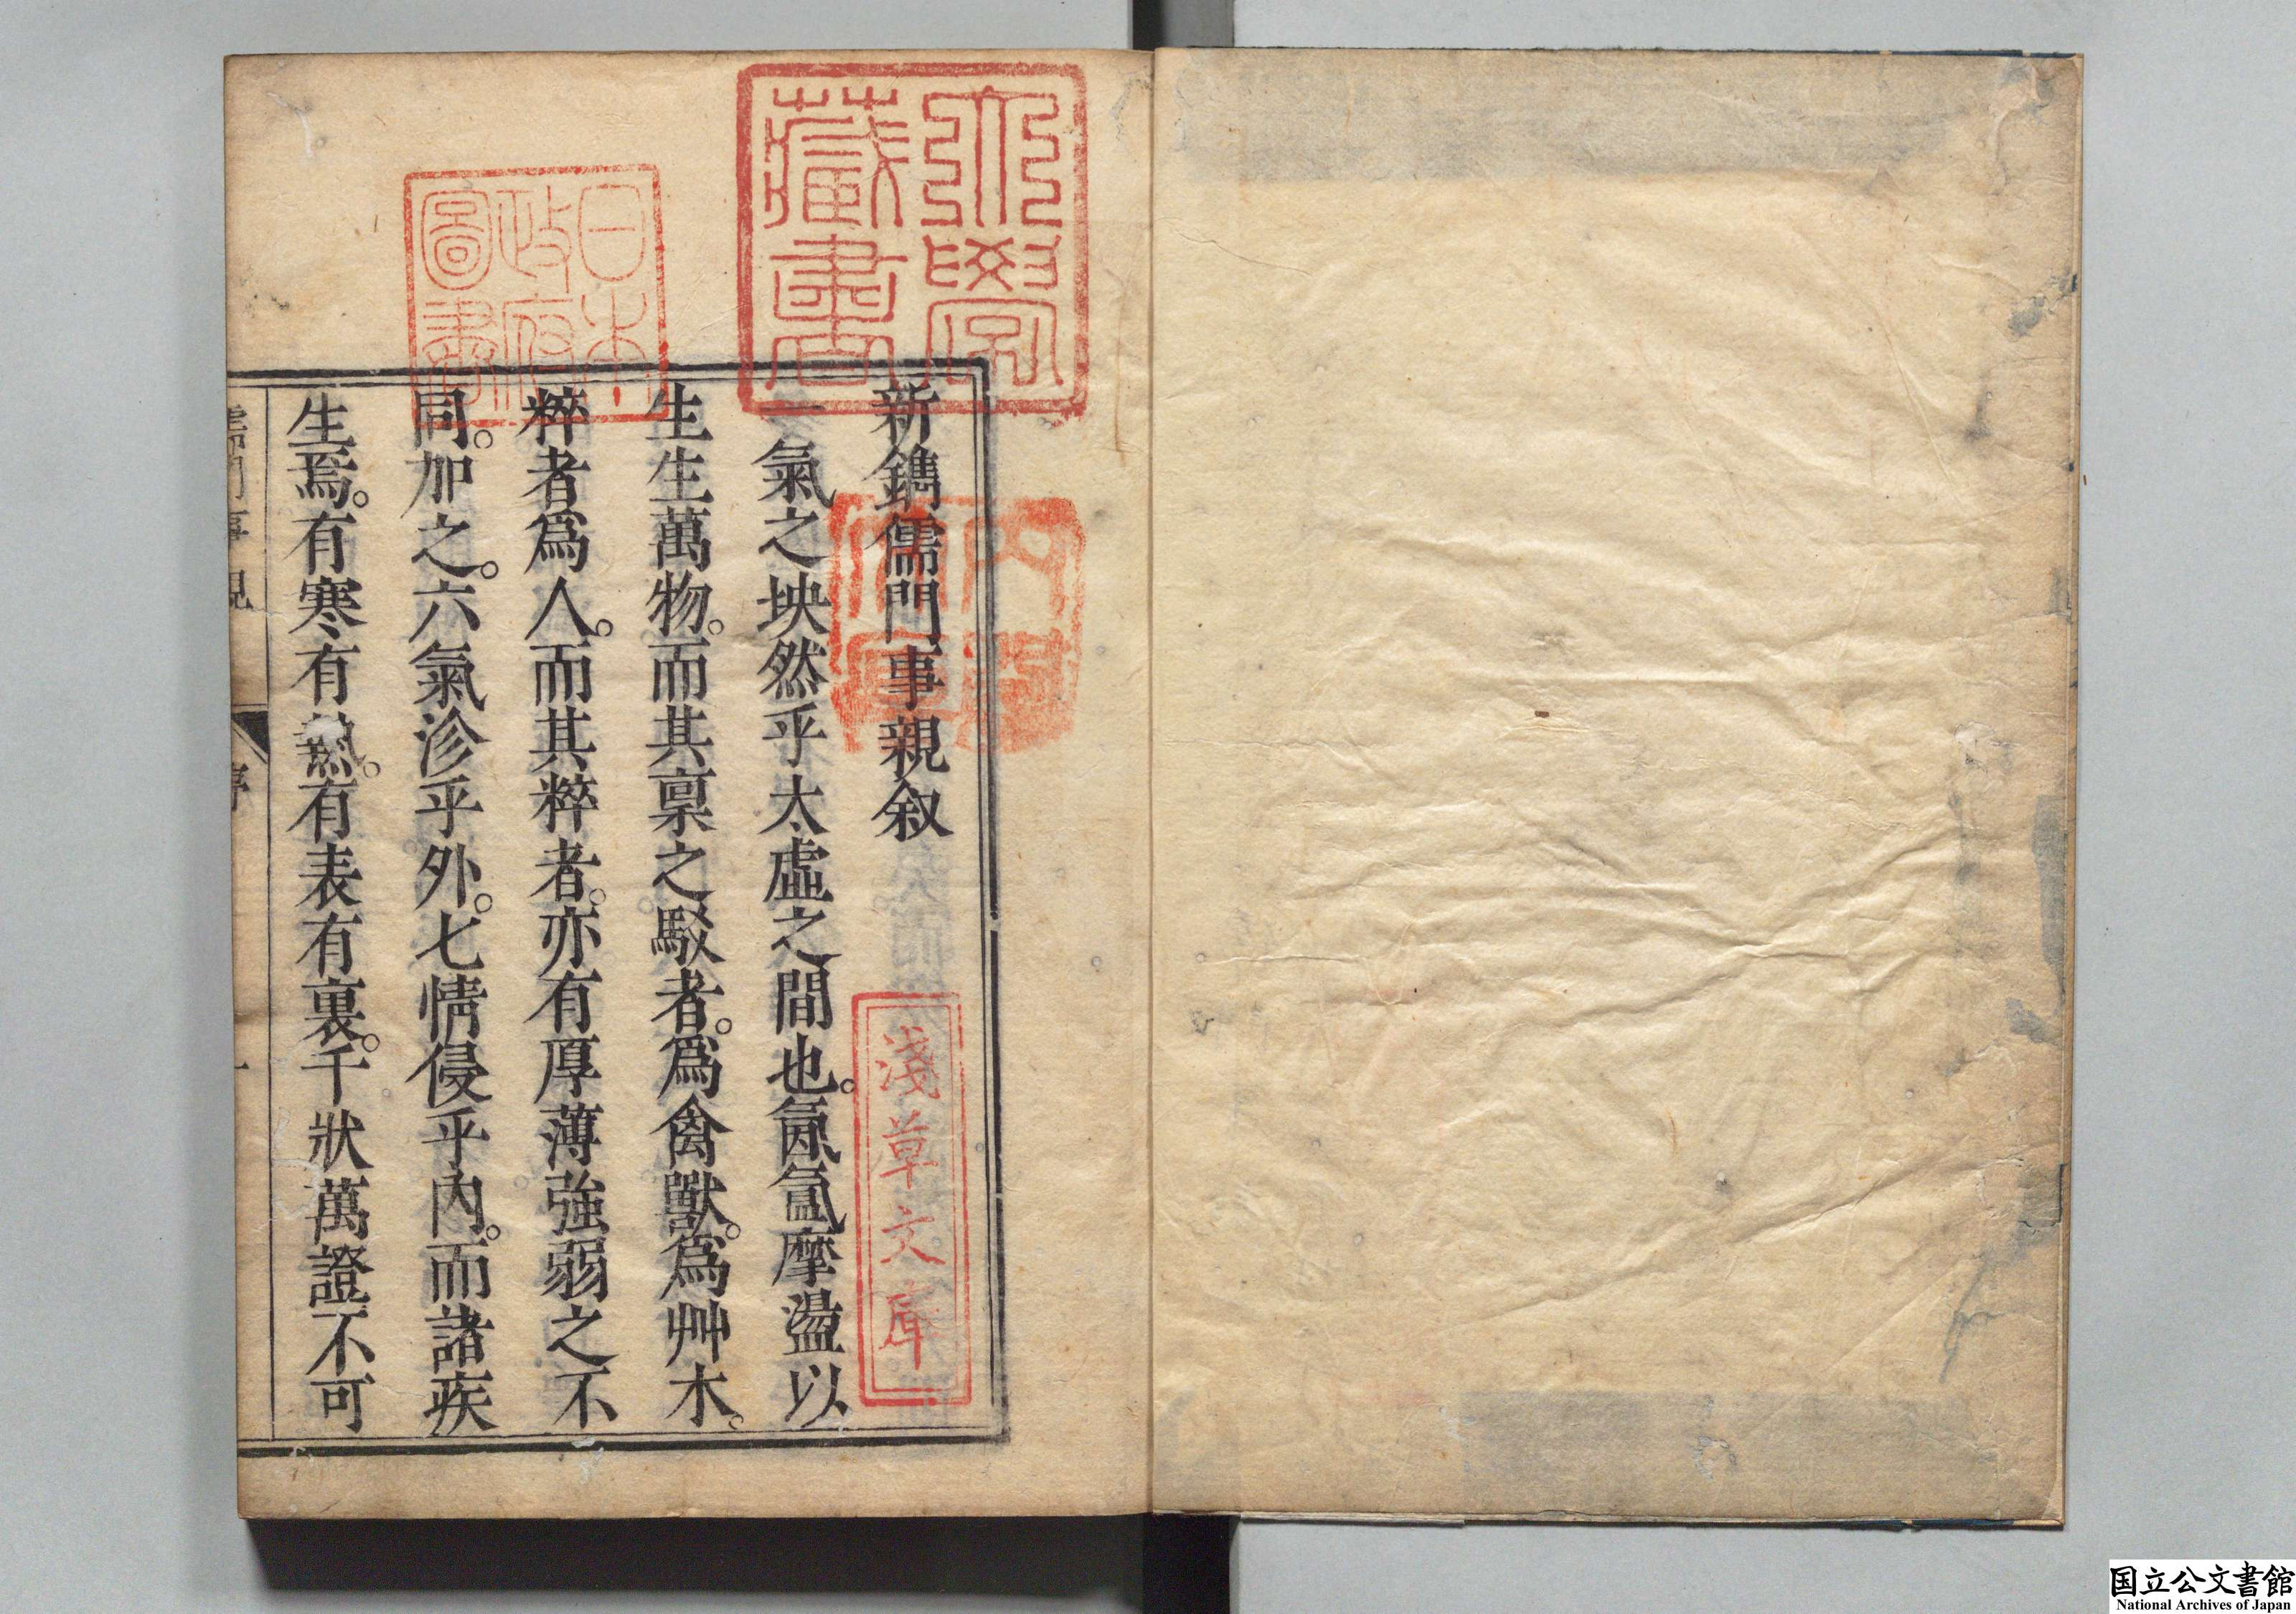 新鐫儒門事親叙
一氣之坱然乎太虛之間也。氤氳摩盪以
生生萬物。而其稟之駁者。爲禽獸。爲艸木。
粹者爲人。而其粹者。亦有厚薄強弱之不
同。加之。六氣沴乎外。七情侵乎內。而諸疾
生焉。有寒有熱。有表有裏。千狀萬證不可
儒門事親
序
一
大學
藏書
日本
政府
圖書
淺草文庫
国立公文書館
National Archives of Japan